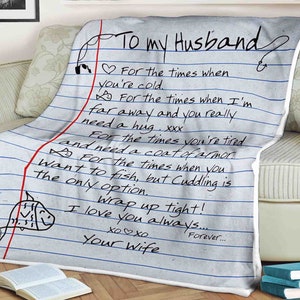 To my Husband
For the times when
you're cold.
For the times when I'm
far away and you really
need a hug.. xxx
For the times you're tired
and need a coat of armor
For the times when you
want to fish, but Cuddling is
the only option.
Wrap up tight!
I love you always...
Forever...
xo xo
Your Wife